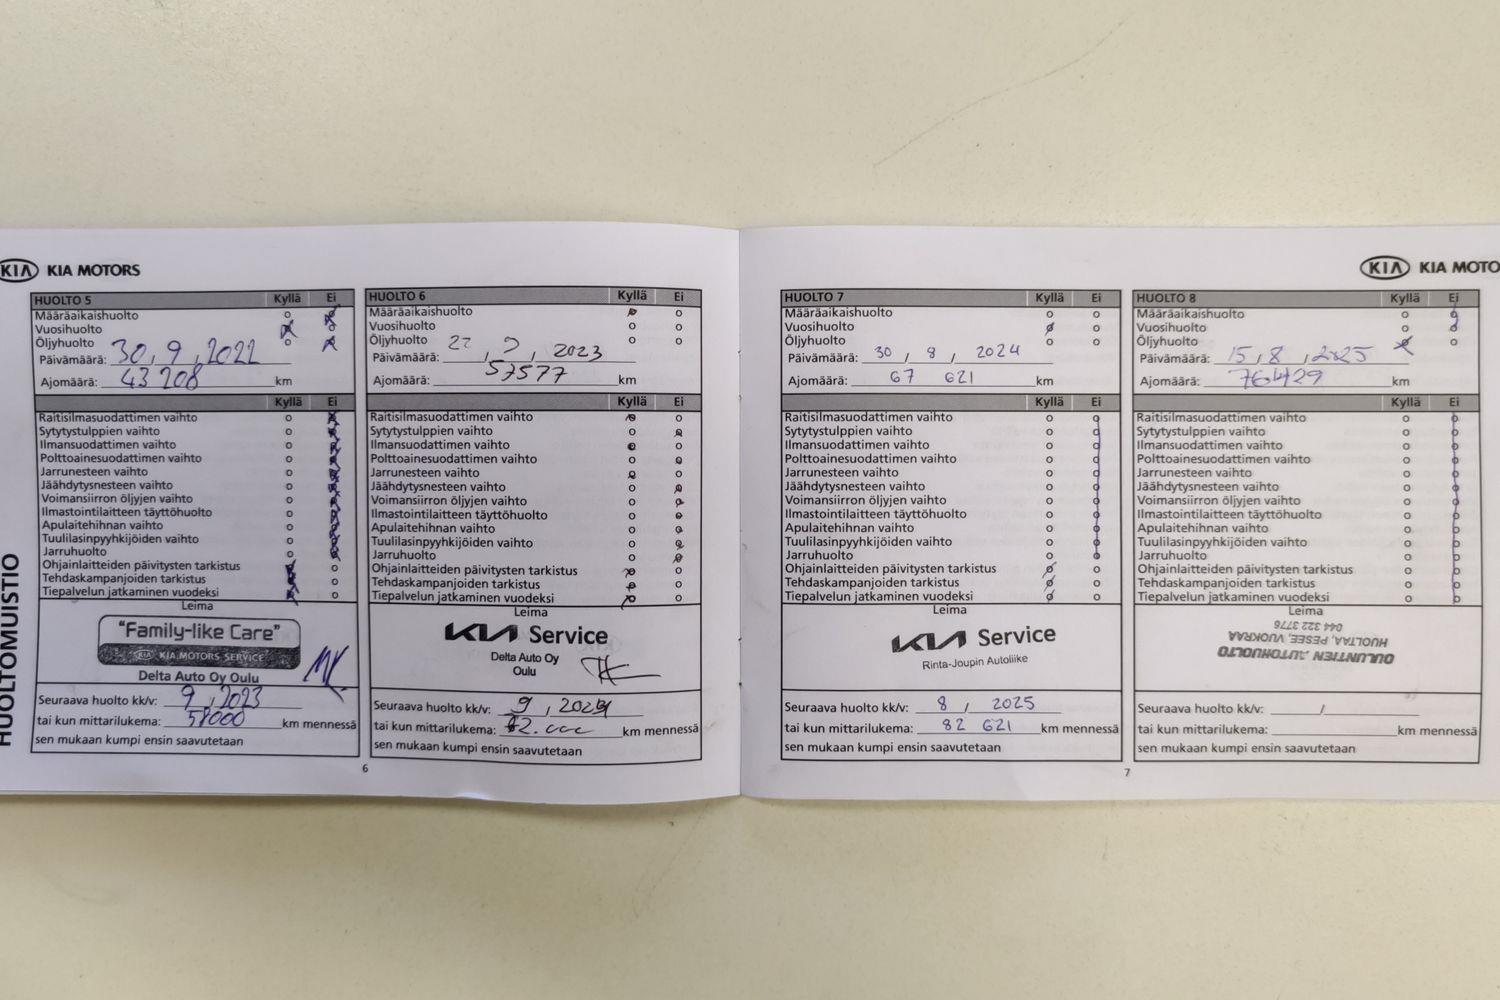 KIA KIA MOTORS
HUOLTOMUISTIO
HUOLTO 5 Kyllä Ei
Määräaikaishuolto
Vuosihuolto
Öljyhuolto
Päivämäärä: 30, 9, 2022
Ajomäärä: 43 208 km
Kyllä Ei
Raitisilmasuodattimen vaihto
Sytytystulppien vaihto
Ilmansuodattimen vaihto
Polttoainesuodattimen vaihto
Jarrunesteen vaihto
Jäähdytysnesteen vaihto
Voimansiirron öljyjen vaihto
Ilmastointilaitteen täyttöhuolto
Apulaitehihnan vaihto
Tuulilasinpyyhkijöiden vaihto
Jarruhuolto
Ohjainlaitteiden päivitysten tarkistus
Tehdaskampanjoiden tarkistus
Tiepalvelun jatkaminen vuodeksi
Leima
"Family-like Care"
KIA KIA MOTORS SERVICE
Delta Auto Oy Oulu
Seuraava huolto kk/v: 9, 2023
tai kun mittarilukema: 58000 km mennessä
sen mukaan kumpi ensin saavutetaan
HUOLTO 6 Kyllä Ei
Määräaikaishuolto
Vuosihuolto
Öljyhuolto
Päivämäärä: , , 2023
Ajomäärä: 57577 km
Kyllä Ei
Raitisilmasuodattimen vaihto
Sytytystulppien vaihto
Ilmansuodattimen vaihto
Polttoainesuodattimen vaihto
Jarrunesteen vaihto
Jäähdytysnesteen vaihto
Voimansiirron öljyjen vaihto
Ilmastointilaitteen täyttöhuolto
Apulaitehihnan vaihto
Tuulilasinpyyhkijöiden vaihto
Jarruhuolto
Ohjainlaitteiden päivitysten tarkistus
Tehdaskampanjoiden tarkistus
Tiepalvelun jatkaminen vuodeksi
Leima
KIA Service
Delta Auto Oy
Oulu
Seuraava huolto kk/v: 9, 2024
tai kun mittarilukema: km mennessä
sen mukaan kumpi ensin saavutetaan
6
KIA KIA MOTO
HUOLTO 7 Kyllä Ei
Määräaikaishuolto
Vuosihuolto
Öljyhuolto
Päivämäärä: 30 / 8 / 2024
Ajomäärä: 67 621 km
Kyllä Ei
Raitisilmasuodattimen vaihto
Sytytystulppien vaihto
Ilmansuodattimen vaihto
Polttoainesuodattimen vaihto
Jarrunesteen vaihto
Jäähdytysnesteen vaihto
Voimansiirron öljyjen vaihto
Ilmastointilaitteen täyttöhuolto
Apulaitehihnan vaihto
Tuulilasinpyyhkijöiden vaihto
Jarruhuolto
Ohjainlaitteiden päivitysten tarkistus
Tehdaskampanjoiden tarkistus
Tiepalvelun jatkaminen vuodeksi
Leima
KIA Service
Rinta-Joupin Autoliike
Seuraava huolto kk/v: 8 / 2025
tai kun mittarilukema: 82 621 km mennessä
sen mukaan kumpi ensin saavutetaan
HUOLTO 8 Kyllä Ei
Määräaikaishuolto
Vuosihuolto
Öljyhuolto
Päivämäärä: 15, 8, 2025
Ajomäärä: 76429 km
Kyllä Ei
Raitisilmasuodattimen vaihto
Sytytystulppien vaihto
Ilmansuodattimen vaihto
Polttoainesuodattimen vaihto
Jarrunesteen vaihto
Jäähdytysnesteen vaihto
Voimansiirron öljyjen vaihto
Ilmastointilaitteen täyttöhuolto
Apulaitehihnan vaihto
Tuulilasinpyyhkijöiden vaihto
Jarruhuolto
Ohjainlaitteiden päivitysten tarkistus
Tehdaskampanjoiden tarkistus
Tiepalvelun jatkaminen vuodeksi
Leima
OULUNTIEN AUTOHUOLTO
HUOLTAA, PESEE, VUOKRAA
044 322 3776
Seuraava huolto kk/v: /
tai kun mittarilukema: km mennessä
sen mukaan kumpi ensin saavutetaan
7